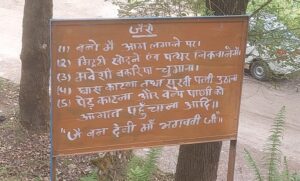 (1) वनो मे आग लगाने पर।
(2) मिट्टी खोदने एवं पत्थर निकालने में।
(3) मवेशी बकरिया चुगाना।
(4) घास काटना तथा सुखी पत्ती उठाना
(5) पेड़ काटना और वन्य प्राणी को
आघात पहुँचाना आदि।
"जै बन देवी माँ भगवती जी"